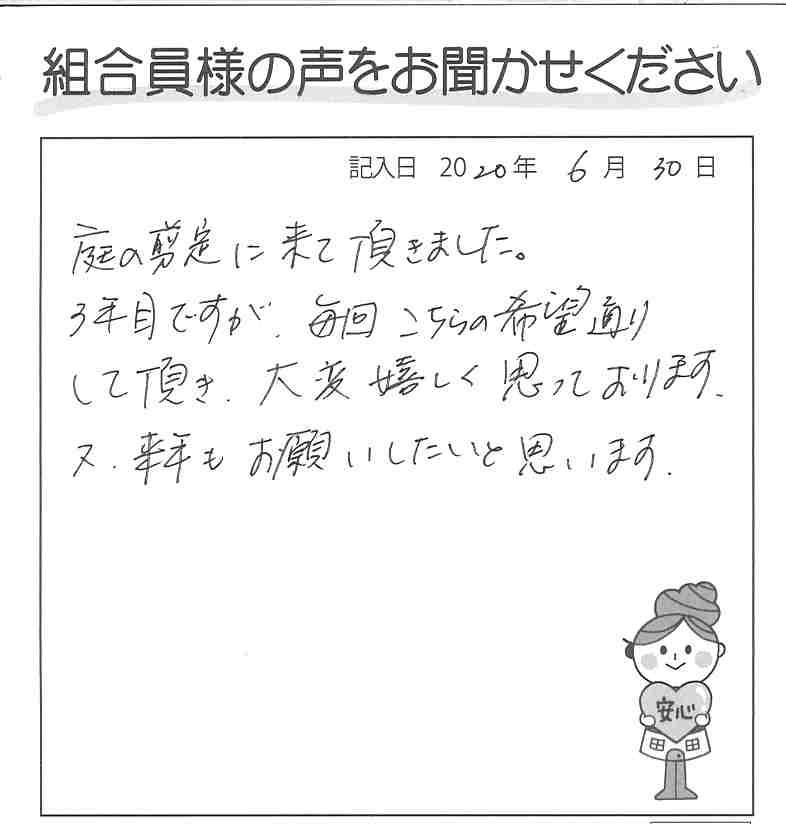 組合員様の声をお聞かせください
記入日 2020年 6月 30日
庭の剪定に来て頂きました。
3年目ですが、毎回こちらの希望通り
して頂き、大変嬉しく思っております、
又、来年もお願いしたいと思います.
安心